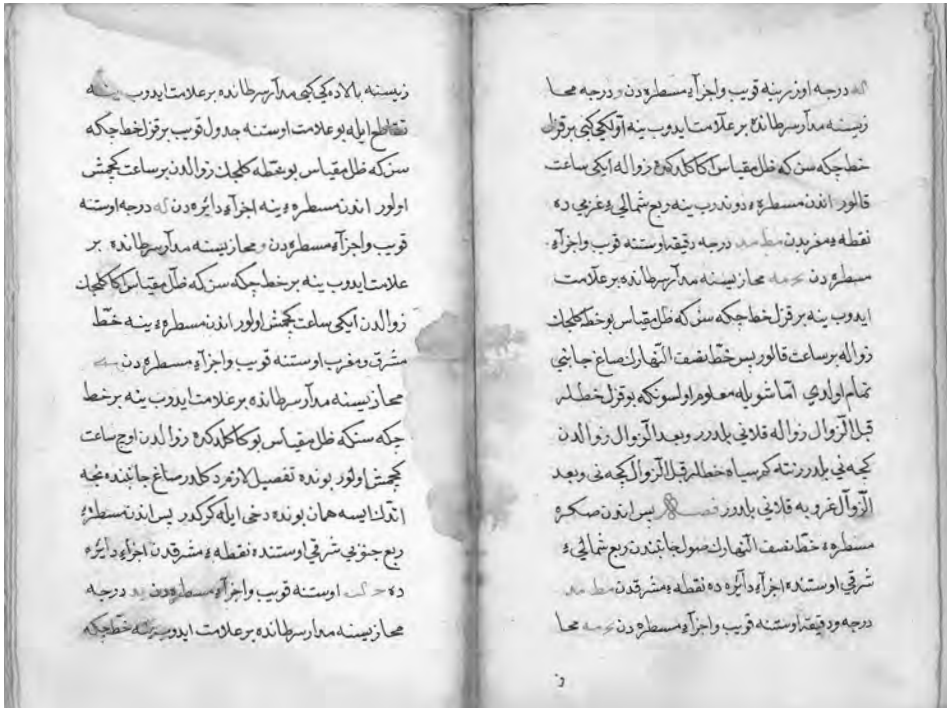 درجه اوزرینه قویب واجزآء مسطره دن درجه محا
زیسنه مدآر سرطانده بر علامت ایدوب ینه اولکی کبی بر قزل
خط چکه سن که ظل مقیاس اکا کلدکده زواله ایکی ساعت
قالور اندن مسطره‌ء دوندرب ینه ربع شمالی‌ء غربی ده
نقطه‌ء مغربدن مط مد درجه دقیقه اوستنه قویب واجزآء
مسطره دن محازیسنه مدآر سرطانده بر علامت
ایدوب ینه بر قزل خط چکه سن که ظل مقیاس بو خطه کلیجك
زواله بر ساعت قالور پس خط نصف النهارك صاغ جانبی
تمام اولدی اما شویله معلوم اولسونکه بو قزل خطلر
قبل الزوال زواله قلانی بلدرر وبعد الزوال زوالدن
کچه نی بلدرر نته کم سیاه خطلر قبل الزوال کچه نی وبعد
الزوال غروبه قلانی بلدرر فصـــل پس ابدون صکره
مسطره‌ء خط نصف النهارك صول جانبندن ربع شمالی‌ء
شرقی اوستنده اجزآء دآئره ده نقطه‌ء مشرقدن مط مد
درجه ودقیقه اوستنه قویب واجزآء مسطره دن محا
ز
زیسنه بالاده کی کبی مدآر سرطانده بر علامت ایدوب ینه
تقاطع ایله بو علامت اوستنه جدول قویب بر قزل خط چکه
سن که ظل مقیاس بو خطه کلیجك زوالدن بر ساعت کچمش
اولور اندن مسطره‌ء ینه اجزآء دآئره دن درجه اوستنه
قویب واجزآء مسطره دن محازیسنه مدآر سرطانده بر
علامت ایدوب ینه بر خط چکه سن که ظل مقیاس اکا کلیجك
زوالدن ایکی ساعت کچمش اولور اندن مسطره‌ء ینه خط
مشرق ومغرب اوستنه قویب واجزآء مسطره دن
محازیسنه مدآر سرطانده بر علامت ایدوب ینه بر خط
چکه سنکه ظل مقیاس بوکا کلدکده زوالدن اوچ ساعت
کچمش اولور بونده تفصیل لازم دکلدر صاغ جانبنده نیجه
اتدك ایسه همان بونده دخی ایله کرکدر پس اندن مسطره‌ء
ربع جنوبی شرقی اوستنده نقطه‌ء مشرقدن اجزآء دآئره
ده اوستنه قویب واجزآء مسطره دن درجه
محازیسنه مدار سرطانده بر علامت ایدوب ینه خط چکه